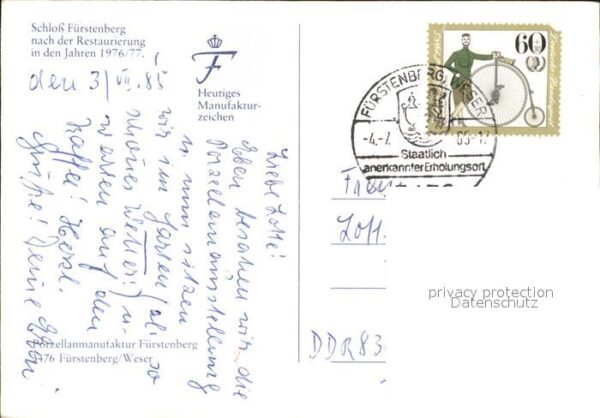 Schloß Fürstenberg
nach der Restaurierung
in den Jahren 1976/77.
den 3/VII.85
F
Heutiges
Manufaktur-
zeichen
Liebe Lotte!
Eben besahen wir die
Porzellanausstellung
u. nun sitzen
wir im Garten (also
schönes Wetter!) u.
warten auf den
Kaffee! Herzl.
Grüße! Deine
Porzellanmanufaktur Fürstenberg
3476 Fürstenberg/Weser
60
Deutsche Bundespost
FÜRSTENBERG, WESER
-4.-7. 85-17
Staatlich
anerkannter Erholungsort
Lott
DDR 83
privacy protection
Datenschutz